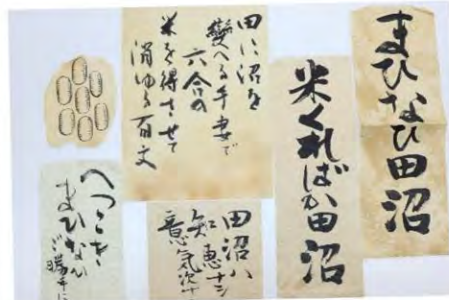 まひなひ田沼
米くればか田沼
田に沼を
變へる手妻で
六合の
米を得させて
消ゆる百文
田沼ハ
知恵十
意気次十
へつこき
まひなひ
ご勝手に